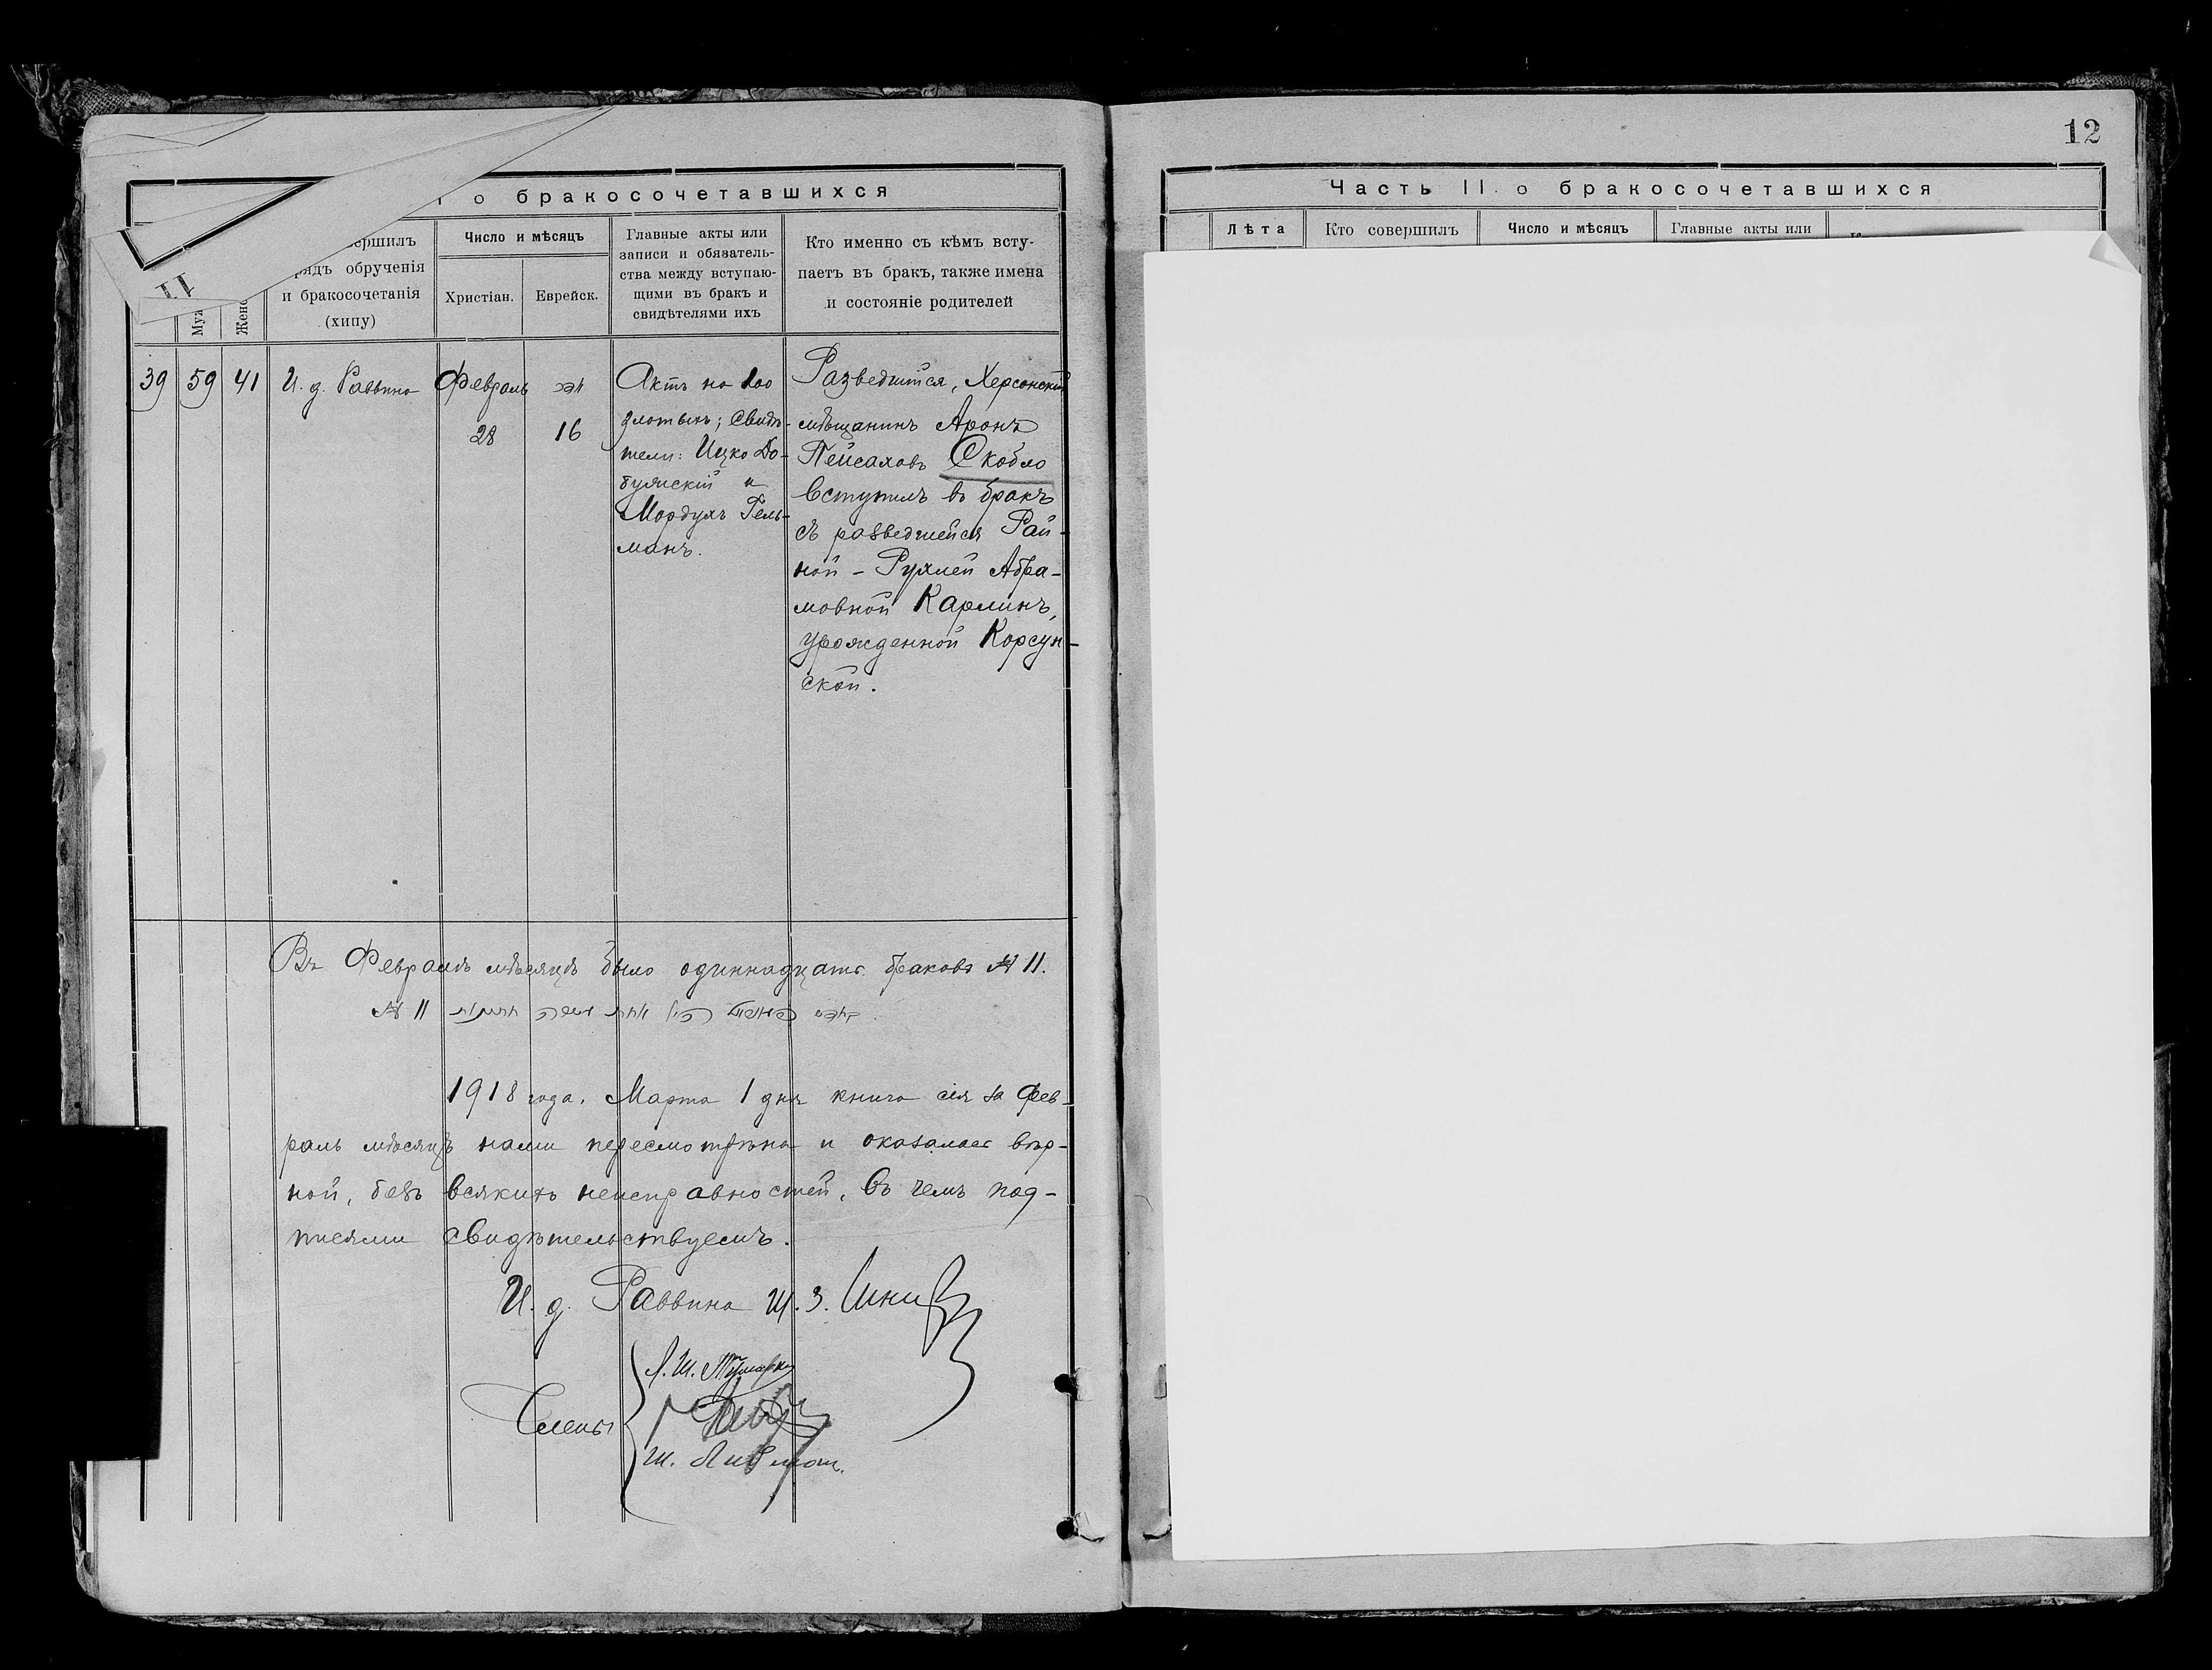 о бракосочетавшихся
обрученія
и бракосочетанія
(хипу)
Число и мѣсяцъ
Христіан.
Еврейск.
Главные акты или
записи и обязатель-
ства между вступаю-
щими въ бракъ и
свидѣтелями ихъ
Кто именно съ кѣмъ всту-
паетъ въ бракъ, также имена
и состояніе родителей
39
59
41
И. д. Раввина
Февраль
28
16
Актъ на 100
злотыхъ; Свидѣ-
тели: Ицко До-
и
Мордухъ Гель-
манъ.
Разведшійся, Херсонскій
мѣщанинъ Аронъ
Пейсаховъ Скобло
вступилъ въ бракъ
съ разведшейся Рай-
ной - Рухлей Абра-
мовной Карлинъ,
урожденной Корсун-
ской.
Въ Февралѣ мѣсяцѣ было одиннадцать браковъ № 11.
№ 11
1918 года. Марта 1 дня книга сія за Фев-
раль мѣсяцъ нами пересмотрѣна и оказалась вѣр-
ной, безъ всякихъ неисправностей, въ чемъ под-
писями свидѣтельствуемъ.
И. д. Раввина Ш. З.
Члены
12
Часть II. о бракосочетавшихся
Лѣта
Кто совершилъ
Число и мѣсяцъ
Главные акты или